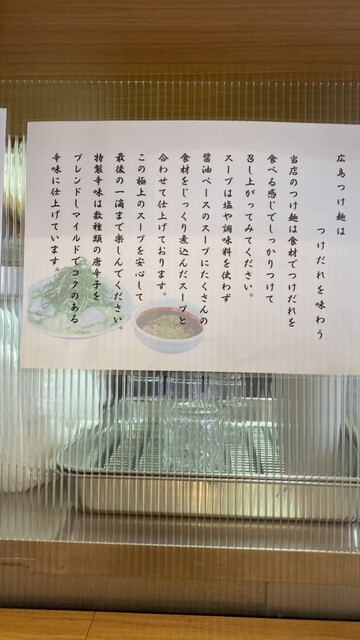 広島つけ麺は
つけだれを味わう
当店のつけ麺は食材でつけだれを
食べる感じでしっかりつけて
召し上がってみてください。
スープは塩や調味料を使わず
醤油ベースのスープにたくさんの
食材をじっくり煮込んだスープと
合わせて仕上げております。
この極上のスープを安心して
最後の一滴まで楽しんでください。
特製辛味は数種類の唐辛子を
ブレンドしマイルドでコクのある
辛味に仕上げています。